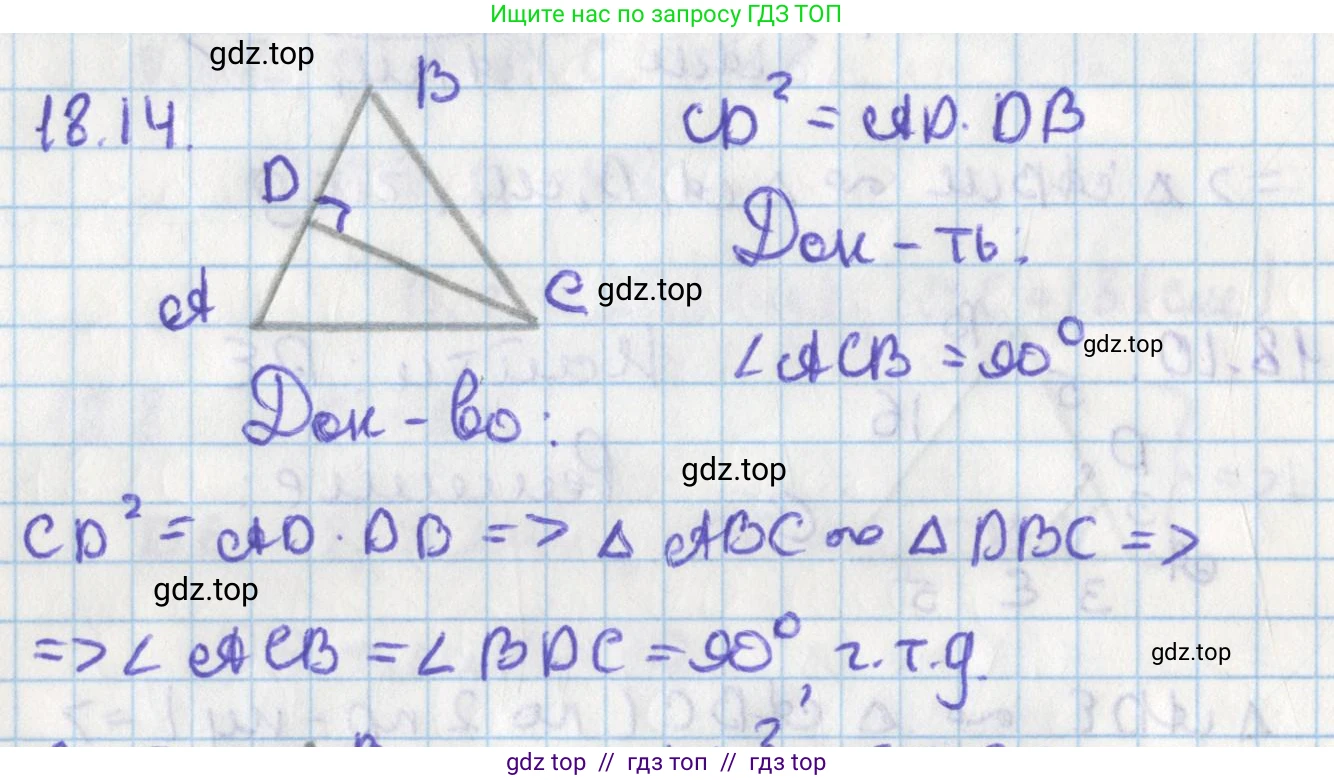 Ищите нас по запросу ГДЗ ТОП
gdz.top
18.14.
B
CD² = AD · DB
D
Док - ть:
A
C
gdz.top
∠ACB = 90°
gdz.top
Док - во:
gdz.top
CD² = AD · DB => △ ABC ∾ △ DBC =>
gdz.top
=> ∠ ACB = ∠ BDC = 90° ч.т.д.
gdz.top
gdz.top // гдз топ // gdz top